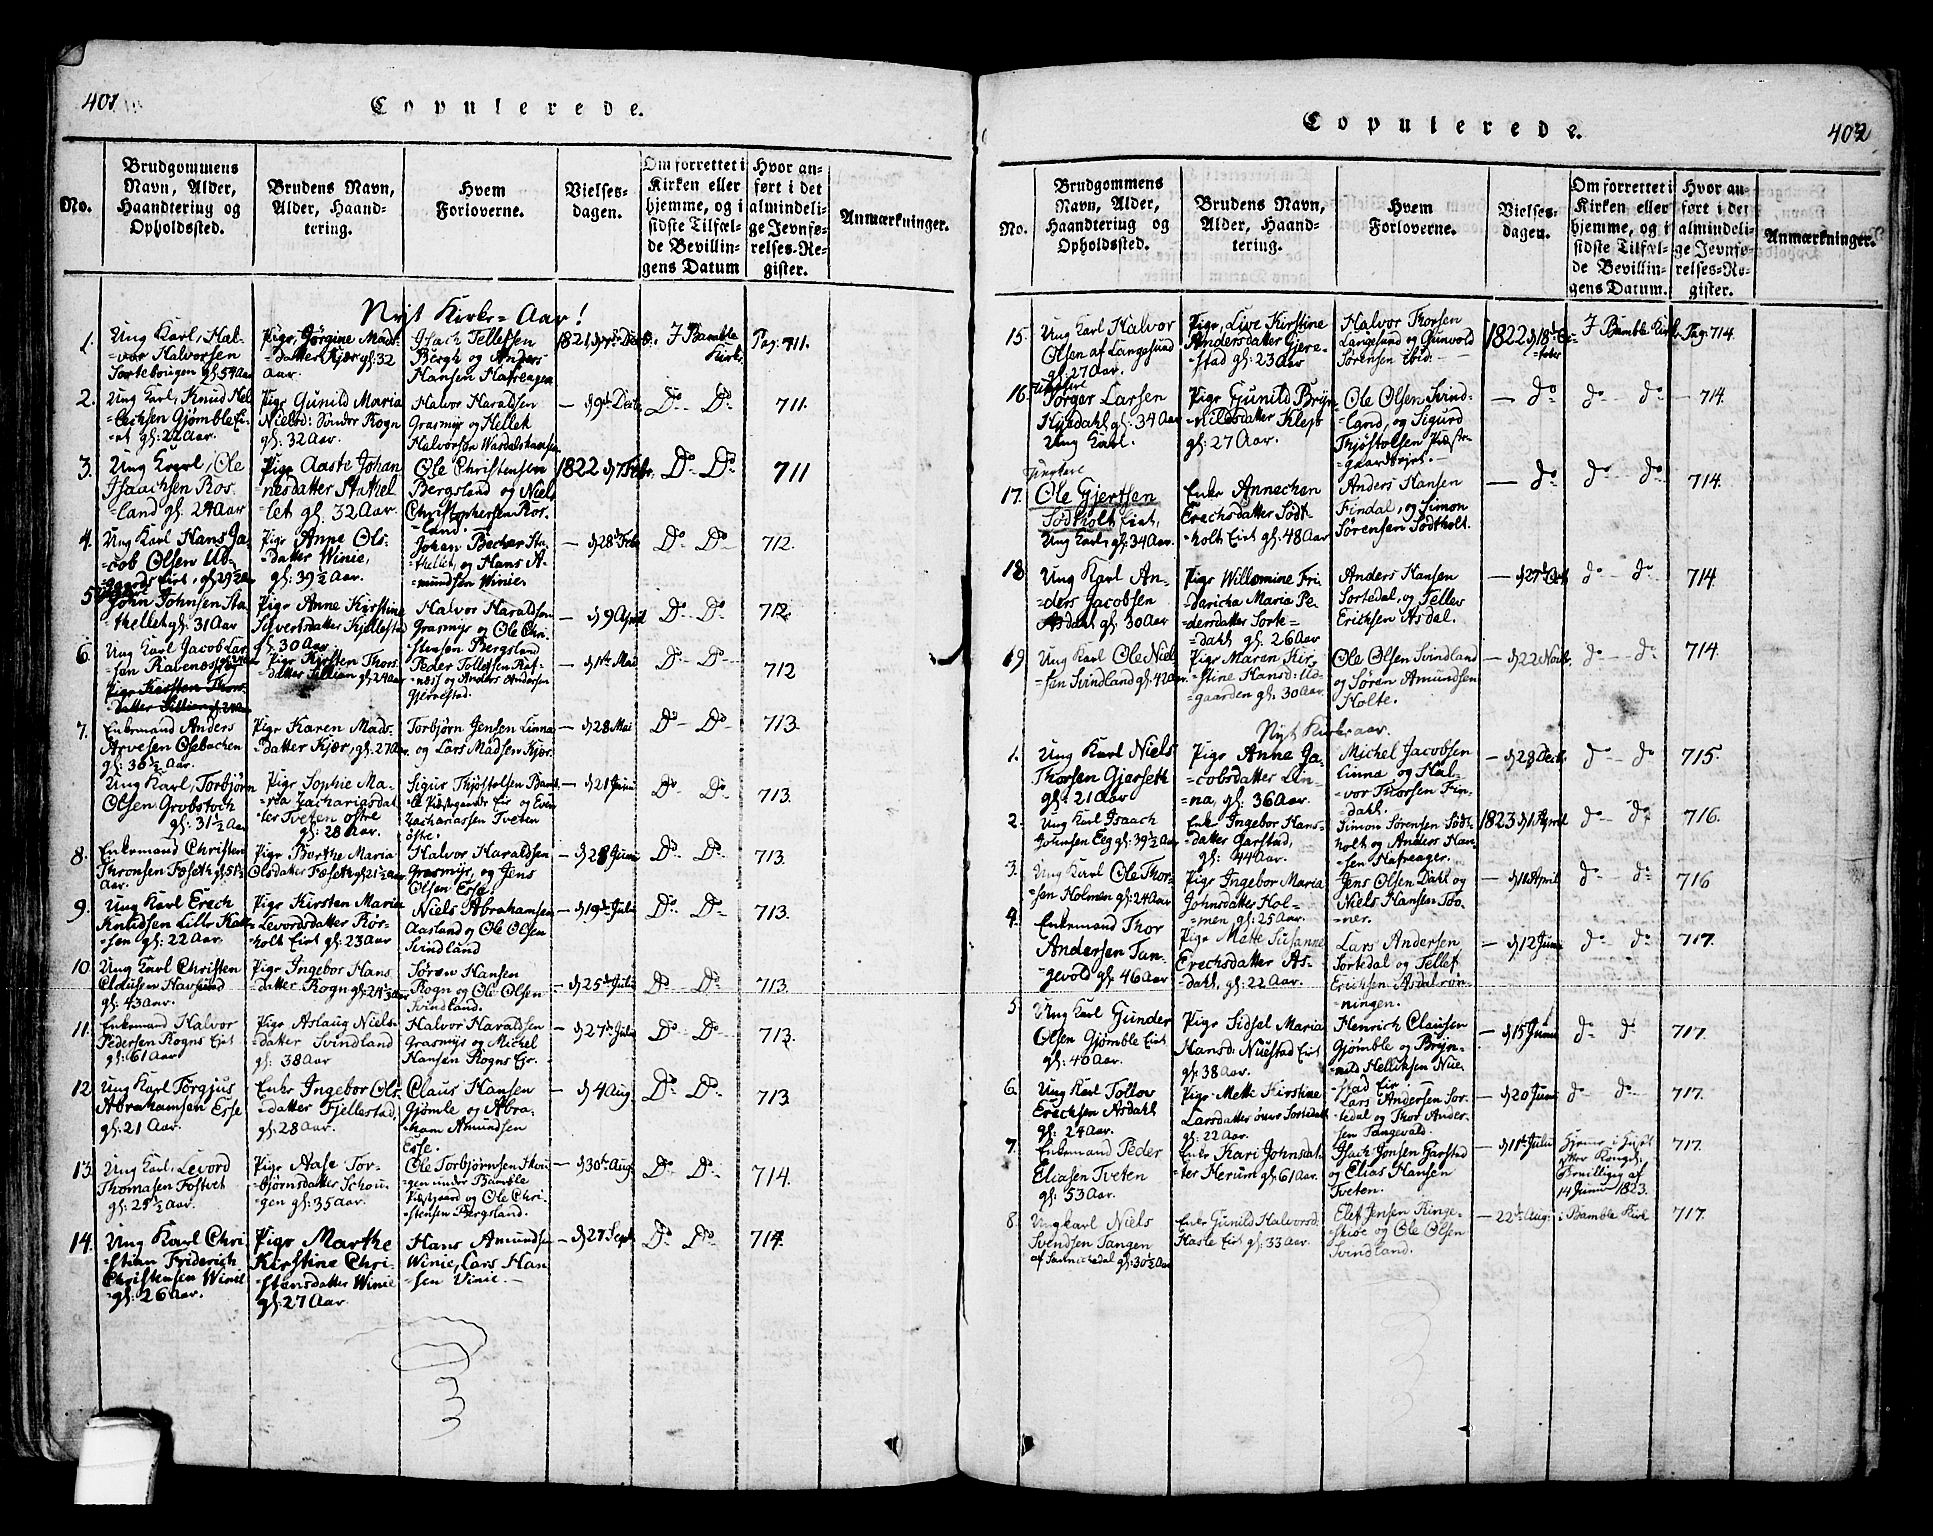 401
Copulerede.
No.
Brudgommens
Navn, Alder,
Haandtering og
Opholdssted.
Brudens Navn,
Alder, Haand-
tering.
Hvem
Forloverne.
Vielses-
dagen.
Om forrettet i
Kirken eller
hjemme, og i
sidste Tilfæl-
de Bevillin-
gens Datum
Hvor an-
ført i det
almindeli-
ge Jevnfø-
relses-Re-
gister.
Anmærkninger.
Nyt Kirke-Aar!
1.
Ung Karl, Hal-
-vor Halvorsen
Sortebougen gl: 54 Aar
Pige Jørgine Mads
datter Kjær gl: 32
Aar.
Isach Tellefsen
Bergh og Anders
Hansen Hafreager
1821
I Bamble
Kirke
Pag: 711.
2.
Ung Karl, Knud Hel-
-lechsen Gjømble Ei-
-et gl: 22 Aar.
Pige Gunild Maria
Nielsd: Vinder Rogn
gl: 32 Aar.
Halvor Haraldsen
Grasmyr og Hellek
Halvorsen
— d 9de Decbr
Do — Do
711.
3.
Ung Karl, Ole
Isaachsen Ros-
land gl. 24 Aar
Pige Aaste Johan
nesdatter Stathel
let gl. 32 Aar.
Ole Christensen
Bergsland og Niels
Christophersen Ros-
-land.
1822 d 7 Febr.
Do Do
711
4.
Ung Karl Hans Ja-
cob Olsen
Pige Anne Ols-
-datter Winie,
gl: 39 ½ Aar.
Johan Becher Sta-
thellet, og Hans A-
mundsen Winie.
— d 28 Feb
Do Do
712.
5.
John Johnsen Sta-
thellet gl: 31 Aar
Pige Anne Kirstine
Sivertsdatter Kjellestad
gl. 30 Aar
Halvor Haraldsen
Grasmyr og Ole Chri-
stensen Bergsland
— d 9 April
Do — Do
712.
6.
Ung Karl Jacob Lar-
sen Ravenæs
Pige Kirsten Thors
datter Tillien gl: 24 Aar
Pige Kirsten Thors-
datter
Peder Tollefsen Raf-
næs og Anders Andersen
Gjerrestad
— d 1ste Mai
Do — Do
712
7.
Enkemand Anders
Arvesen Osebachen
gl: 36 ½ Aar.
Pige Karen Mads-
-datter Kjær, gl: 27 Aar
Torbjørn Jensen Linna
og Lars Madsen Kjær.
— d 28 Mai
Do — Do
713.
Ung Karl, Torbjørn
Olsen Grobstoch
gl: 31 ½ Aar
Pige Sophie Ma-
-rea Zachariasdat
ter Tveten østre
gl: 28 Aar.
Sigur Thjøstolsen Bamb-
-le Præstgaards Eie og Even
Zachariassen Tveten
østre.
— d 21 Juni
Do Do
713.
8.
Enkemand Christen
Thronsen Fosseth gl: 51 ½
Aar.
Pige Borthe Maria
Olsdatter Foseth gl: 21 ½ Aar
Halvor Haraldsen
Grasmyr, og Jens
Olsen Esse
— d 28 Juni
Do Do
713.
9.
Ung Karl Erech
Knudsen Lille
-sen gl: 22 Aar.
Pige Kirsten Maria
Levordsdatter Rør-
holt Eiet gl: 23 Aar
Niels Abrahamsen
Aasland og Ole Olsen
Svindland
— d 19de Julii
Do Do
713.
10.
Ung Karl Christen
Clausen Havsund
gl: 43 Aar.
Pige Ingebor Hans
datter Rogn
Søren Hansen
Rogn og Ole Olsen
Svindland.
— d 25de Julii
Do Do
713.
11.
Enkemand Halvor
Pedersen Rogns Eiet
gl: 61 Aar
Pige Aslaug Niels-
datter Svindland
gl: 38 Aar
Halvor Haraldsen
Grasmyr og Michel
Hansen Rogns Eie.
— d 27de Julii
Do Do
713.
12.
Ung Karl Torgjus
Abrahamsen Esse
gl: 21 Aar.
Enke Ingebor Ols-
-datter Fjellestad.
gl: 28 Aar.
Claus Hansen
Gjømle og Abra-
ham Amundsen
Esse.
— d 4 Aug.
Do Do
713.
13.
Ung Karl Levord
Thomasen Fostvet
gl: 25 ½ Aar.
Pige Aase Tor-
bjørnsdatter Schou-
gen gl: 35 Aar.
Ole Torbjørnsen Skou-
gen under Bamble
Præstgaard og Ole Chri-
stensen Bergsland.
— d 30te Aug
Do Do
714.
14.
Ung Karl Chri-
stian Friderich
Christensen Winie
gl: 26 Aar.
Pige Marthe
Kirstine Chri-
-stensdatter Winie
gl: 27 Aar.
Hans Amundsen
Winie, Lars Han-
sen Vinie. —
— d 27 Sept
Do Do
714.
402
Copulerede.
No.
Brudgommens
Navn, Alder,
Haandtering og
Opholdssted.
Brudens Navn,
Alder, Haand-
tering.
Hvem
Forloverne.
Vielses-
dagen.
Om forrettet i
Kirken eller
hjemme, og i
sidste Tilfæl-
de Bevillin-
gens Datum.
Hvor an-
ført i det
almindeli-
ge Jevnfø-
relses-Re-
gister.
Anmærkninger.
15.
Ung Karl Halvor
Olsen af Langesund
gl: 27 Aar.
Pige, Live Kirstine
Andersdatter Gjere-
stad gl: 23 Aar
Halvor Thorsen
Langesund og Gunvold
Sørensen ibid. —
1822 d 18
I Bamble Kirke
Pag: 714.
16.
Torger Larsen
Hydahl gl: 34 Aar
Ung Karl.
Pige Gunild Bryn-
nildsdatter Klep
gl: 27 Aar.
Ole Olsen Svind-
land, og Sigurd
Thjøstolsen Præste-
gaardseiet. —
— do
do — do
714.
17.
Ole Gjertsen
Sødtholt Eiet,
Ung Karl, gl: 34 Aar.
Enke Annechen
Erechsdatter Sødt-
holt Eiet gl: 48 Aar
Anders Hansen
Findal, og Simon
Sørensen Sødtholt.
— do
do do
714.
18.
Ung Karl An-
ders Jacobsen
Asdahl gl: 30 Aar
Pige Willomine Fri-
daricha Maria Pe-
dersdatter Sorte-
dahl gl. 26 Aar
Anders Hansen
Sortedal, og Tellev
Erichsen Asdal.
— d 27de Oct
do — do
714
19.
Ung Karl Ole Niel-
sen Svindland gl: 42 Aar
Pige Maren Kir-
stine Hansd: Ud-
gaarden gl: 30 Aar.
Ole Olsen Svindland
og Søren Amundsen
Holte.
— d 22 Novb.
do do
714.
Nyt Kirkeaar.
1.
Ung Karl Niels
Thorsen Gjerseth
gl: 21 Aar
Pige Anne Ja-
cobsdatter Lin-
na, gl: 36 Aar.
Michel Jacobsen
Linna og Hal-
vor Thorsen Fin-
dahl.
— d 28 Decbr
do do
715.
2.
Ung Karl Isaach
Johnsen Eeg gl: 39 ½ Aar
Enke Ingebor Hans-
datter Garstad,
gl: 44 Aar.
Simon Sørensen Sødt-
holt og Anders Han-
sen Hafreager.
1823 d 1 April
do do
716.
3.
Ung Karl Ole Thor-
sen Holmen gl: 24 Aar
Pige Ingebor Maria
Johnsdatter Hol-
men, gl: 25 Aar.
Jens Olsen Dahl og
Niels Hansen Too-
ner.
— d 11 April
do do
716
4.
Enkemand Thor
Andersen Tan-
gevold gl: 46 Aar
Pige Mette Susanne
Erechsdatter As-
dahl, gl: 22 Aar.
Lars Andersen
Sortedal og Tellef
Erichsen Asdalrøn-
ningen.
— d 12 Juni
do do
717.
5.
Ung Karl Gunder
Olsen Gjømble Eiet
gl: 40 Aar.
Pige Sidsel Maria
Hansd: Nuestad Eiet
gl: 38 Aar.
Henrich Clausen
Gjømble og Bryn-
nild Hellichsen Nue-
stad Eie
— d 15 Juni
do do
717.
6.
Ung Karl Tollov
Erechsen Asdahl
gl: 24 Aar.
Pige Mette Kirstine
Larsdatter øvre Sortedahl
gl: 22 Aar.
Lars Andersen Sor-
tedal og Thor Ander-
sen Tangevald.
— d 20 Juni
do do
717.
7.
Enkemand Peder
Eliasen Tveten
gl: 53 Aar.
Enke Kari Johnsdat
ter Herum gl: 61 Aar.
Isach Jonsen Garstad
og Elias Hansen
Tveten.
— d 11te Julii
Hjemme i Huset
efter Kongel.
Bevilling af
14 Junii 1823.
717.
8.
Ungkarl Niels
Svendsen Tangen
af Sannichedal gl: 30 ½ Aar
Enke Gunild Halvorsd.
Hasle Eiet gl: 33 Aar.
Elef Jensen Ringe-
skoe og Ole Olsen
Svindland.
— 22de Aug.
i Bamble Kirke
717.